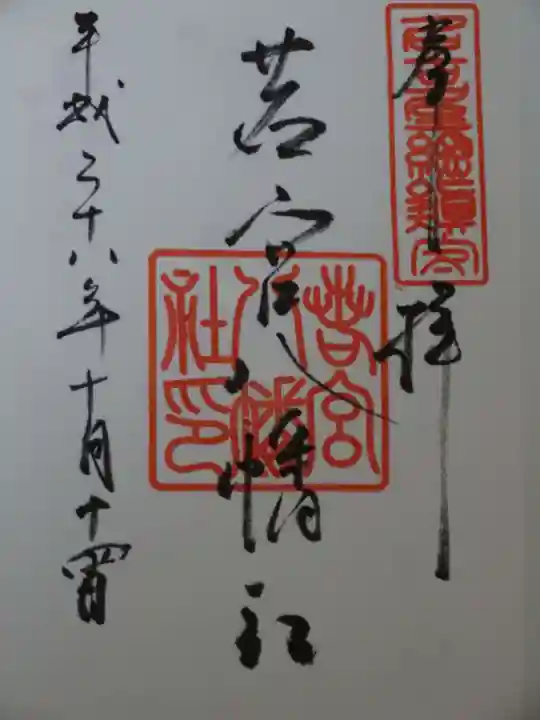 奉拝
若宮八幡社
若宮八幡社印
平成二十八年十月十四日